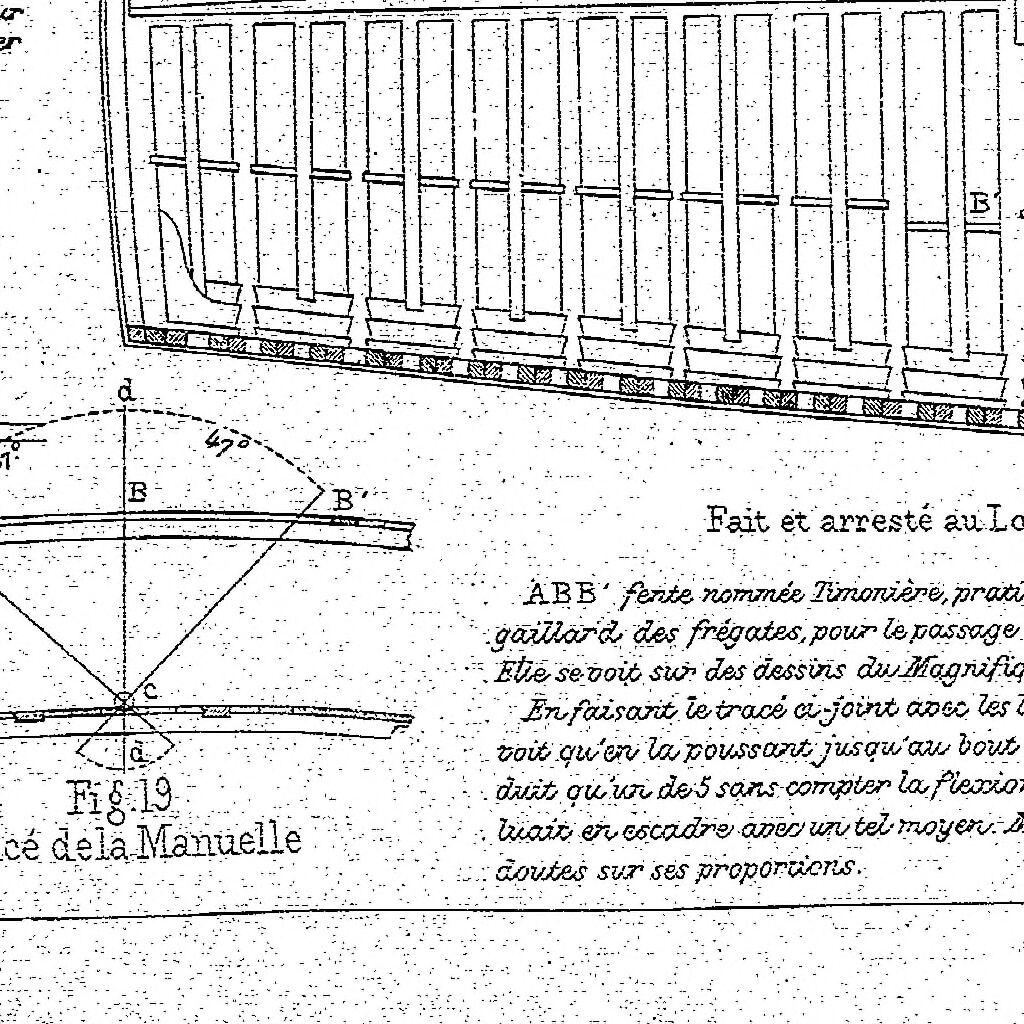 er
B'
d
47°
B
B'
Fait et arresté au Lo
ABB' fente nommée Timonière, prati
gaillard des frégates, pour le passage
Elle se voit sur des dessins du Magnifiq
En faisant le tracé ci-joint avec les l
voit qu'en la poussant jusqu'au bout
duit qu'un de 5 sans compter la flexion
luait en escadre avec un tel moyen. A
doutes sur ses proportions.
c
d
Fig. 19
cé de la Manuelle